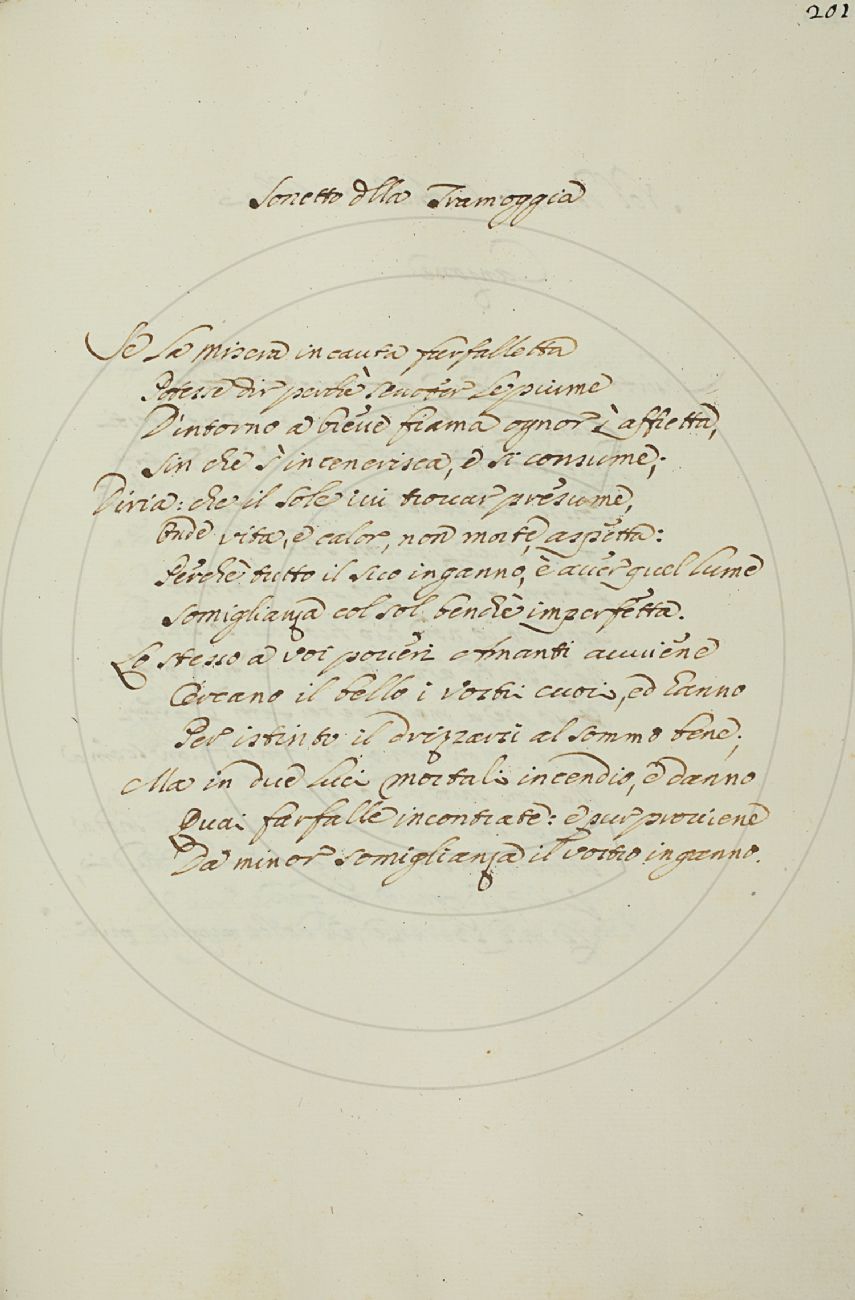 201
Sonetto dlla Tramoggia
Se la misera incauta farfalletta
Potesse dir perchè scuoter le piume
D'intorno a breve fiama ognor s'affretta,
Sin che s'incenerisca, e si consume;
Diria: che il sole ivi trovar presume,
Onde vita, e calor, non morte, aspetta:
Perchè tutto il suo inganno, è aver quel lume
Somiglianza col sol, benchè imperfetta.
Lo stesso a voi poveri Amanti avviene
Cercano il bello i vostri cuori, ed hanno
Per istinto il drizzarsi al sommo bene;
Ma in due luci mortali incendio, e danno
Quai farfalle incontrate: e pur proviene
Da minor somiglianza il vostro inganno.